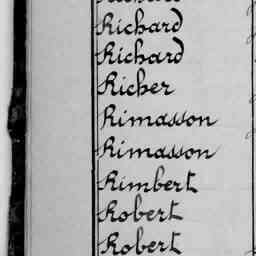 Richard
Richard
Richer
Rimasson
Rimasson
Rimbert
Robert
Robert